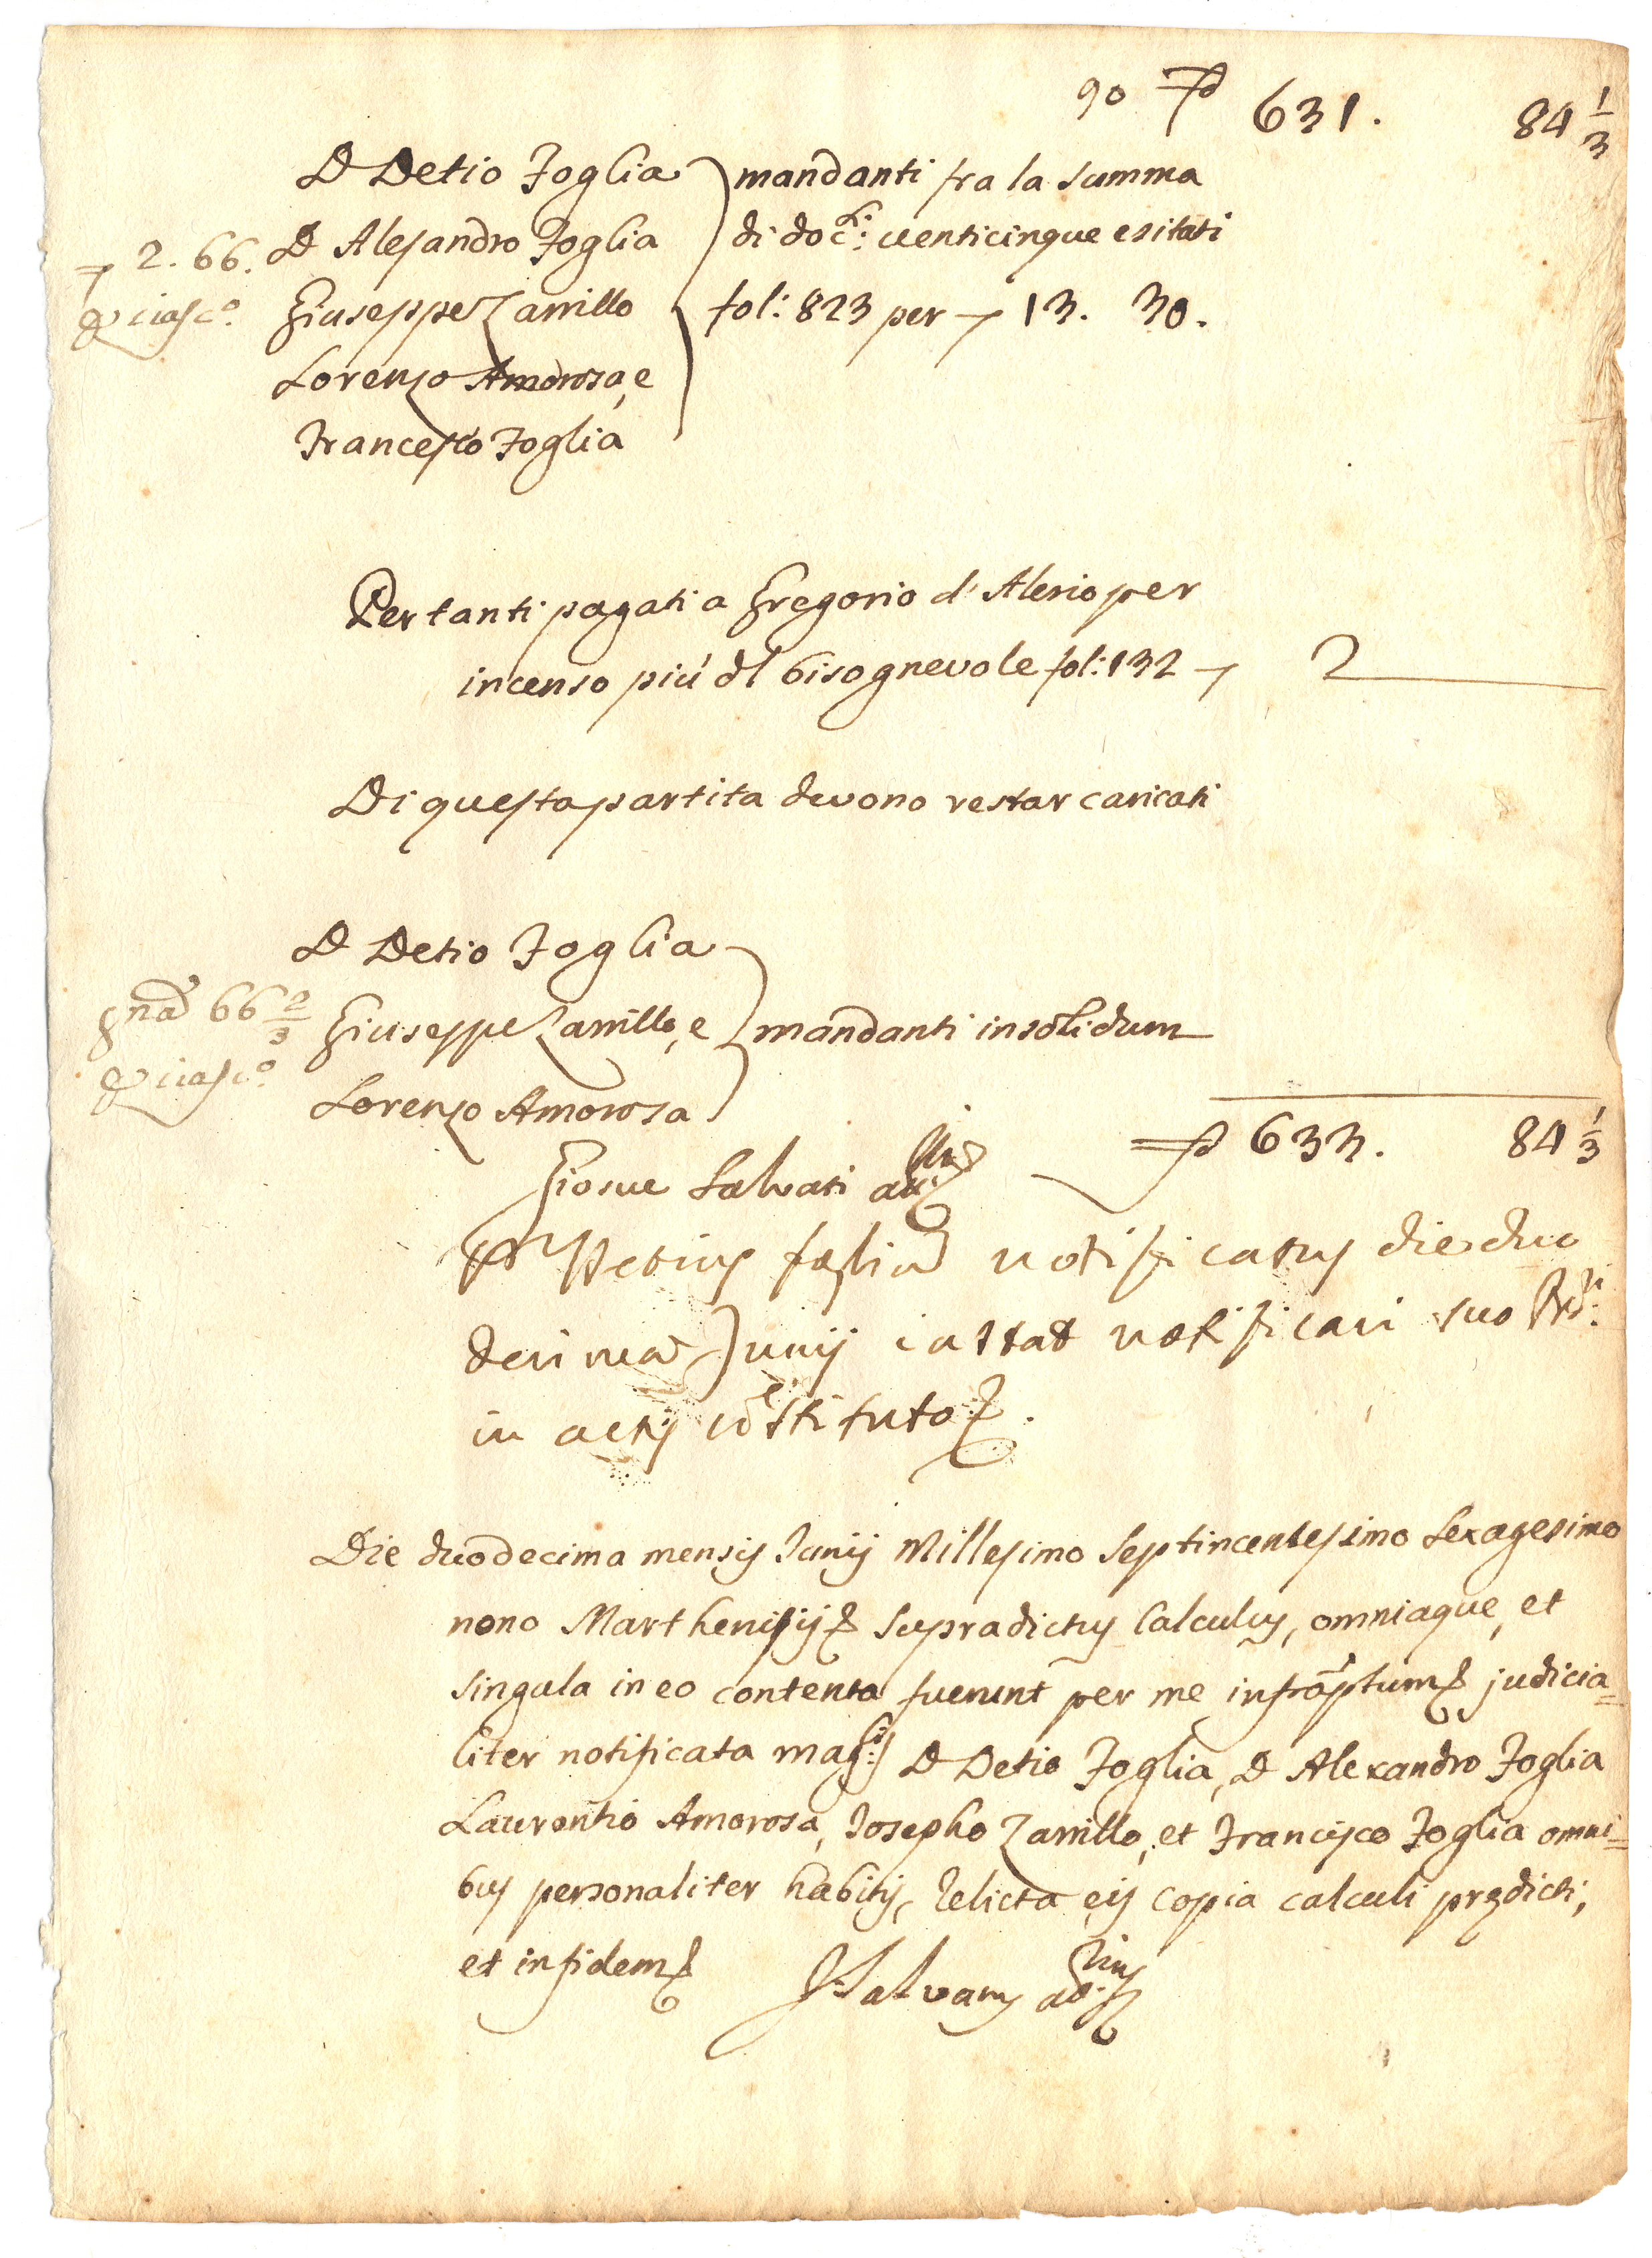 90 631. 84 1/3
D Detio Foglia mandanti fra la summa
D Alesandro Foglia di doc.ti venticinque esitati
2. 66. 
Giuseppe Zarrillo fol: 823 per 13. 30.
ciasc.o
Lorenzo Amorosa, e
Francesco Foglia
Per tanti pagati a Gregorio d'Alesio per
incenso più dl bisognevole fol: 132 2
Di questa partita devono restar caricati
D Detio Foglia
gna 66 2/3 Giuseppe Zarrillo, e mandanti insolidum
ciasc.o
Lorenzo Amorosa
633. 84 1/3
Giosue Salvati
Detius Foglia notificatus die duo
decima Junij instat notificari suo
in actis constituto
Die duodecima mensis Junij Millesimo Septincentesimo Sexagesimo
nono Marthenisij Supradictus Calculus, omniaque, et
singula in eo contenta fuerunt per me infraptum judicia=
liter notificata mag:cis D Detio Foglia, D Alexandro Foglia
Laurentio Amorosa, Josepho Zarrillo, et Francisco Foglia omni=
bus personaliter habitis, relicta eis copia calculi prędicti,
et in fidem Salvatus